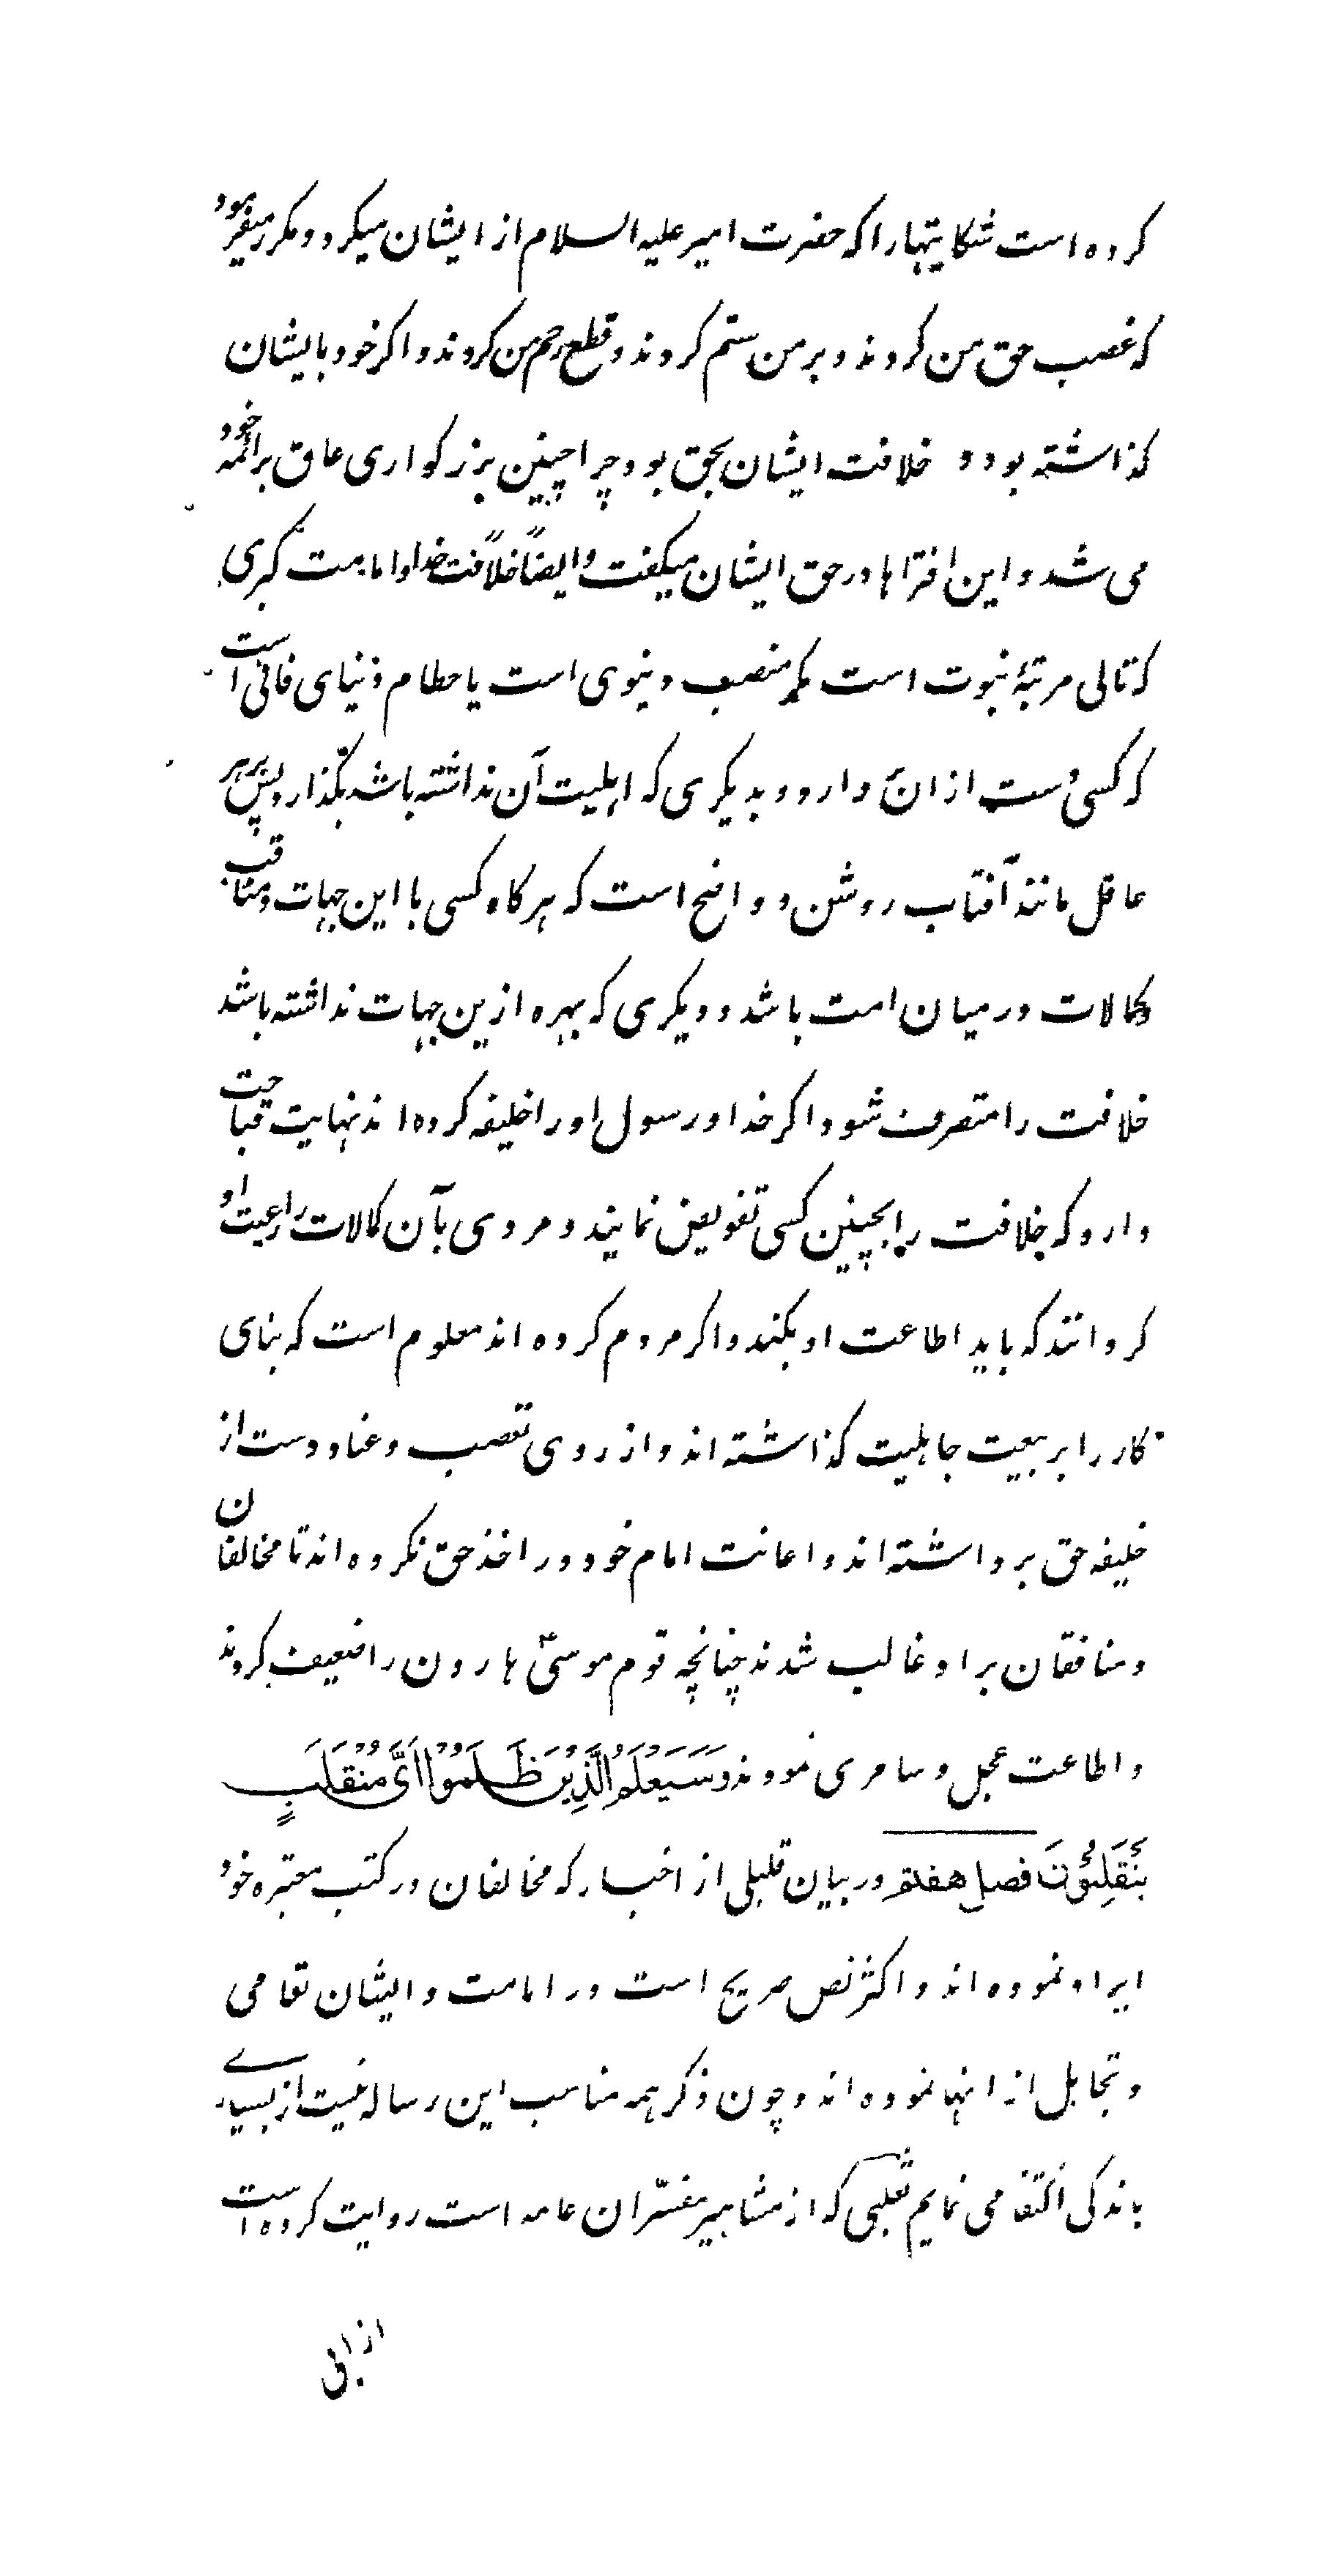 کرده است شکایتهارا که حضرت امیر علیه السلام از ایشان میکرد و مکرر میفرمود
که غصب حق من کردند و بر من ستم کردند و قطع رحم من کردند و اکر خود بایشان
کذاشته بود و خلافت ایشان بحق بود چرا چنین بزرکواری عاق برائمه خود
می شد و این افتراها در حق ایشان میکفت و ایضاً خلافت خدا و امامت کبری
که تالی مرتبهٔ نبوت است مکر منصب دنیوی است یا حطام دنیای فانی است
که کسی دست از ان بر دارد و بدیکری که اهلیت آن نداشته باشد بگذارد پس بر هر
عاقل مانند آفتاب روشن و واضح است که هرکاه کسی با این جهات و مناقب
و کمالات در میان امت باشد و دیکری که بهره ازین جهات نداشته باشد
خلافت را متصرف شود اکر خدا و رسول او را خلیفه کرده اند نهایت قباحت
دارد که خلافت را بچنین کسی تفویض نمایند و مردی بآن کمالات را رعیت او
کردانند که باید اطاعت او بکند و اکر مردم کرده اند معلوم است که بنای
کار را بر بیعت جاهلیت کذاشته اند و از روی تعصب و عناد دست از
خلیفه حق برداشته اند و اعانت امام خود در اخذ حق نکرده اند تا مخالفان
و منافقان بر او غالب شدند چنانچه قوم موسیٰ هارون را ضعیف کردند
و اطاعت عجل و سامری نمودند وَسَیَعْلَمُ الَّذِینَ ظَلَمُوا اَیَّ مُنْقَلَبٍ
یَنْقَلِبُونَ فصل هفتم در بیان قلیلی از اخبار که مخالفان در کتب معتبره خود
ایراد نموده اند و اکثر نص صریح است در امامت و ایشان تعامی
و تجاهل از انها نموده اند و چون ذکر همه مناسب این رساله نیست از بسیاری
باندکی اکتفا می نمایم ثعلبی که از مشاهیر مفسّران عامه است روایت کرده است
از ابی